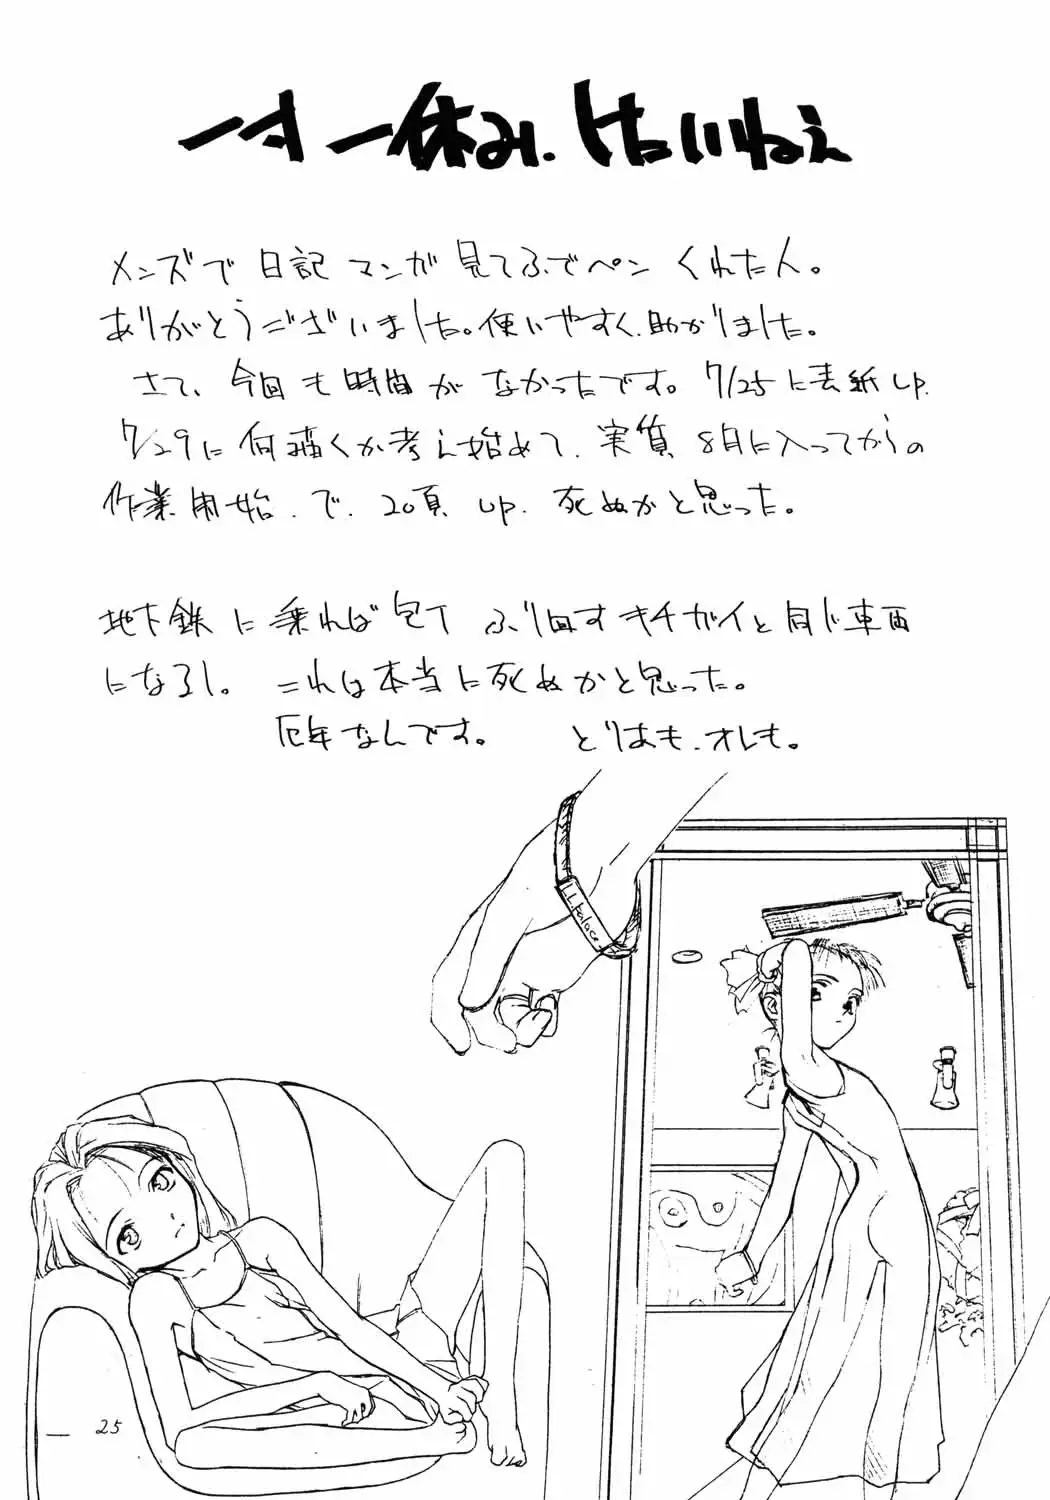 一寸一休み、したいねぇ
メンズで日記マンガ見てふでペンくれた人。
ありがとうございました。使いやすく、助かりました。
さて、今回も時間がなかったです。7/25に表紙up.
7/29に何描くか考え始めて、実質8月に入ってからの
作業開始.で、20頁up.死ぬかと思った。
地下鉄に乗れば包丁ふり回すキチガイと同じ車両
になるし。これは本当に死ぬかと思った。
厄年なんです。とりあも、オレも。
25